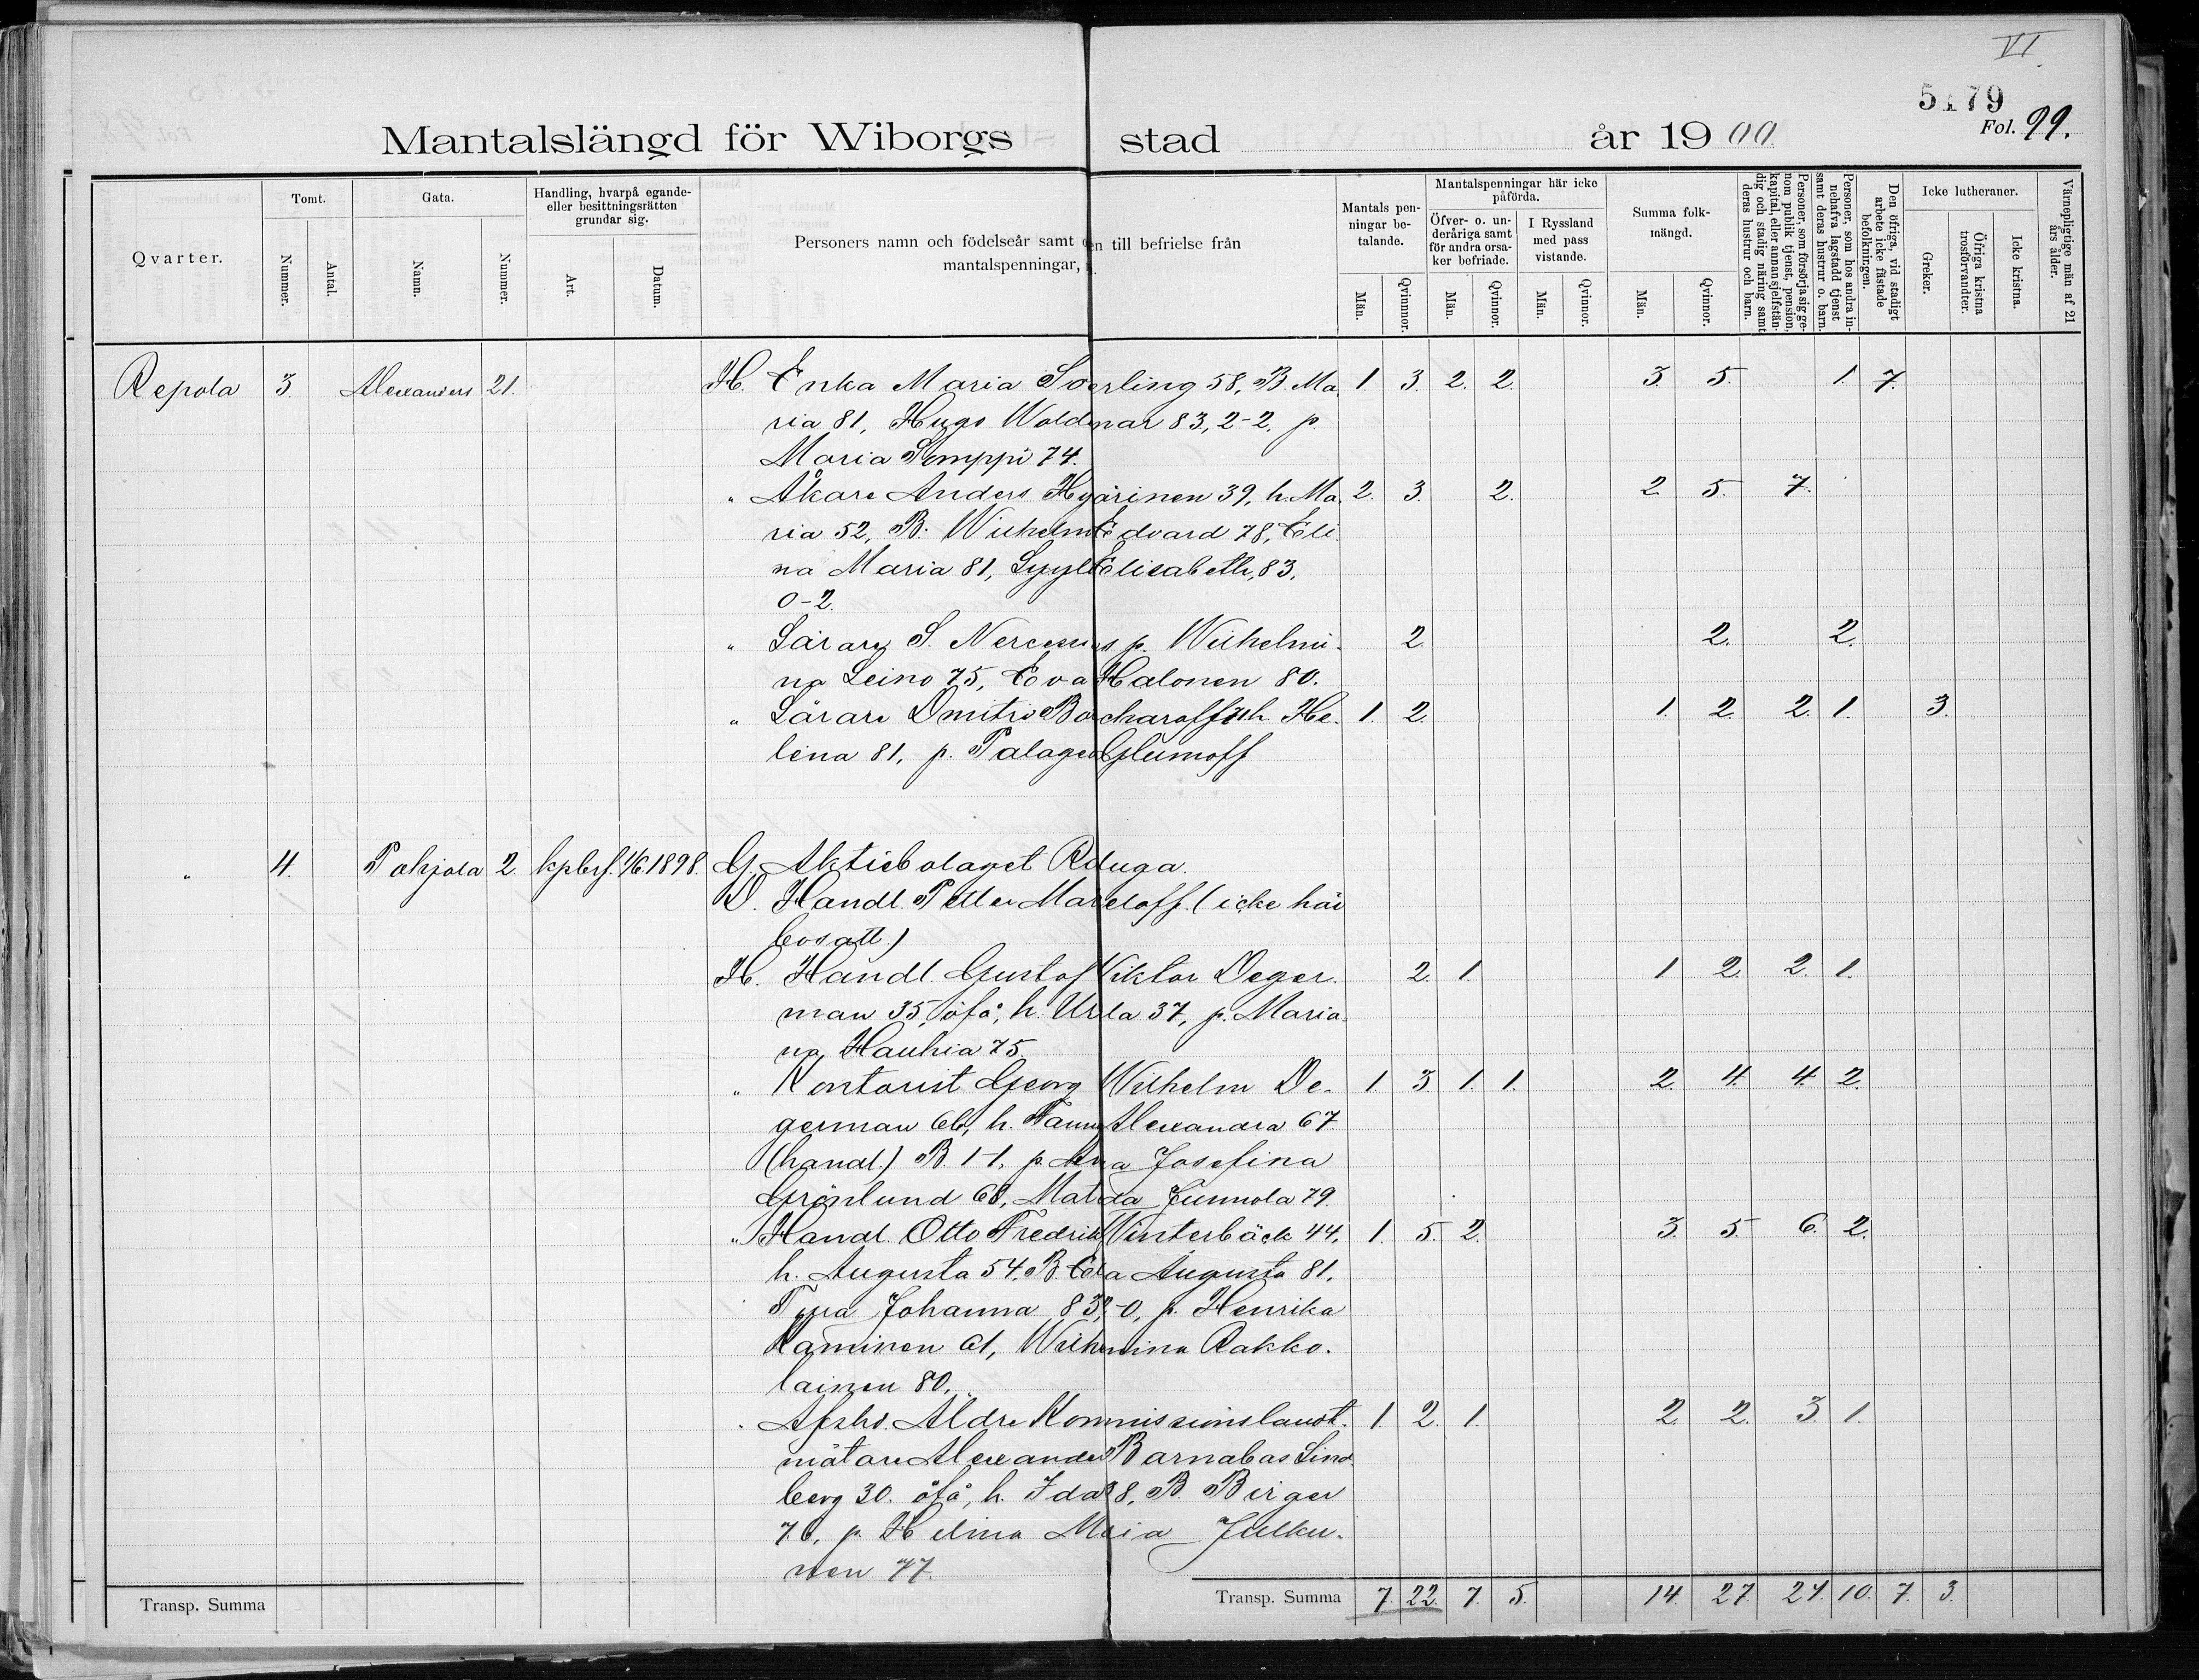 VI
5179
Mantalslängd för Wiborgs stad år 1900 Fol. 99.
Qvarter. Tomt. Gata. Handling, hvarpå egande- eller besittningsrätten grundar sig.
Nummer. Antal. Namn. Nummer. Art. Datum.
Personers namn och födelseår samt en till befrielse från
mantalspenningar,
Mantals penningar betalande. Män. Qvinnor.
Mantalspenningar här icke påförda.
Öfver- o. underåriga samt för andra orsaker befriade. Män. Qvinnor.
I Ryssland med pass vistande. Män. Qvinnor.
Summa folkmängd. Män. Qvinnor.
Personer, som försörja sig genom publik tjenst, pension, kapital, eller annan sjelfständig och stadig näring samt deras hustrur och barn.
Personer, som hos andra innehafva lagstadd tjenst samt deras hustrur o. barn.
Den öfriga, vid stadigt arbete icke fästade befolkningen.
Icke lutheraner. Greker. Öfriga kristna trosförvandter. Icke kristna.
Värnepligtige män af 21 års ålder.
Repola 3. Alexanders 21. H. Enka Maria Sverling 58, B. Ma- 1 3. 2. 2. 3. 5. 1. 7.
ria 81, Hugo Woldmar 83, 2-2. p.
Maria Somppi 74.
" Åkare Anders Hyärinen 39, h. Ma- 2. 3. 2. 2 5. 7.
ria 52, B. Wilhelm Edvard 78, Eli-
na Maria 81, Lyyli Elisabeth, 83,
0-2.
" Lärare S. p. Wilhelmi- 2. 2. 2.
na Leino 75, Eva Halonen 80.
" Lärare Dmitri Bocharoff h. He- 1. 2. 1. 2. 2. 1. 3.
lena 81, p. Glumoff
" 4. Pohjola 2. kpbrf. 1/6 1898. G. Aktiebolaget Raduga.
D. Handl. Petter Markeloff. (icke här
bosatt.)
H. Handl. Gustaf Viktor Deger- 2. 1. 1. 2. 2. 1.
man 35, öfå, h. Ulla 37, p. Maria-
na Hauhia 75.
" Kontorist Georg Wilhelm De- 1. 3. 1. 1. 2. 4. 4. 2.
german 66, h. Fanny Alexandra 67
(handl.) B. 1-1, p. Josefina
Grönlund 68, Matilda Junnola 79.
" Handl. Otto Fredrik Winterbäck 44, 1. 5. 2. 3. 5. 6. 2.
h. Augusta 54, B. Augusta 81,
Tyra Johanna 83, 2-0, p. Henrika
Kaminen 61, Wilhelmina Rakko-
lainen 80.
" Afskd. Äldre Kommissionslandt- 1. 2. 1. 2. 2. 3. 1.
mätare Alexander Barnabas Lind-
berg 30. öfå, h. Ida 38, B. Birger
76, p. Helina Maria Julku-
nen 77.
Transp. Summa Transp. Summa 7. 22. 7. 5. 14. 27. 24. 10. 7. 3.